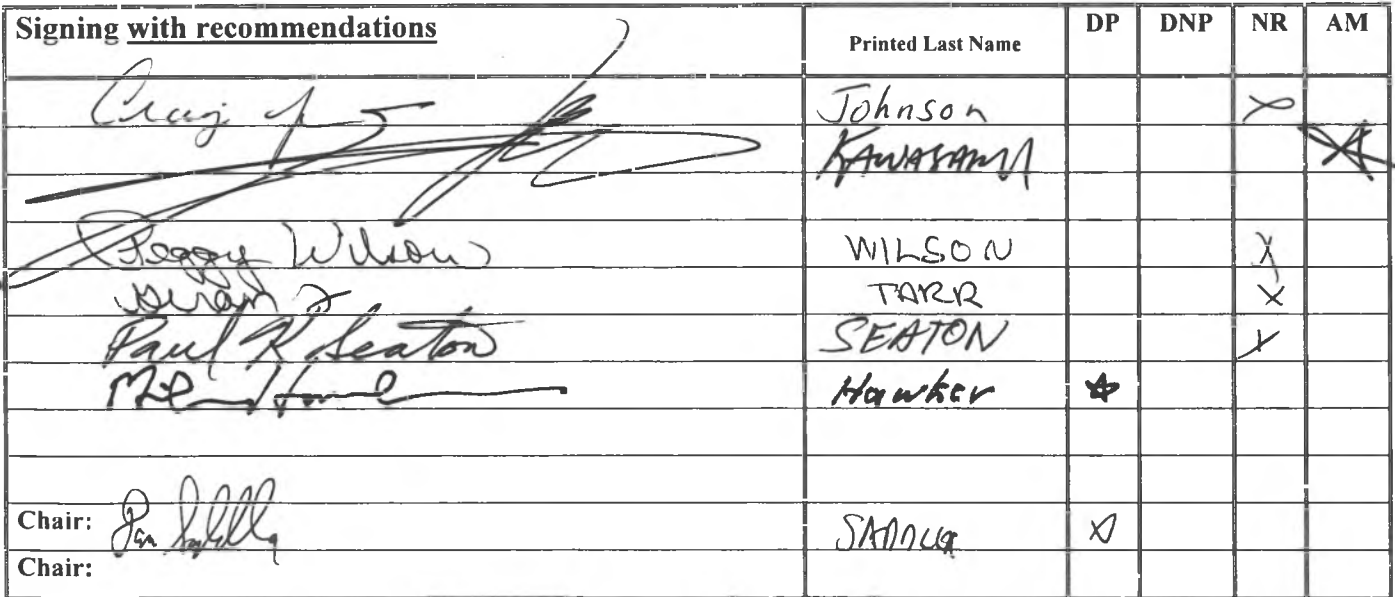 Signing with recommendations Printed Last Name DP DNP NR AM
Craig Johnson X
KAWASAKI X
Peggy Wilson WILSON X
TARR X
Paul K Seaton SEATON X
Hawker X
Chair: X
Chair: